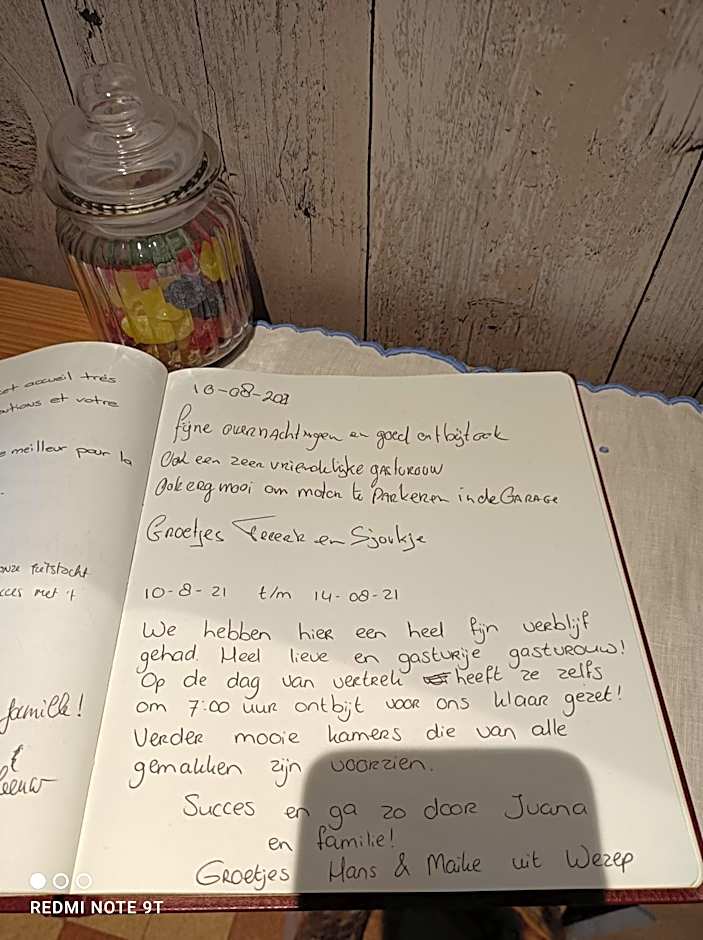 et accueil très
et votre
meilleur pour la
onze fietstocht
met 't
famille!
10-08-2021
fijne overnachtingen en goed ontbijt ook
Ook een zeer vriendelijke gastvrouw
Ook erg mooi om motor te Parkeren in de GARAGE
Groetjes en Sjoukje
10-8-21 t/m 14-08-21
We hebben hier een heel fijn verblijf
gehad. Heel lieve en gastvrije gastvrouw!
Op de dag van vertrek heeft ze zelfs
om 7:00 uur ontbijt voor ons klaar gezet!
Verder mooie kamers die van alle
gemakken zijn voorzien.
Succes en ga zo door Juana
en familie!
Groetjes Hans & Maike uit Wezep
REDMI NOTE 9T